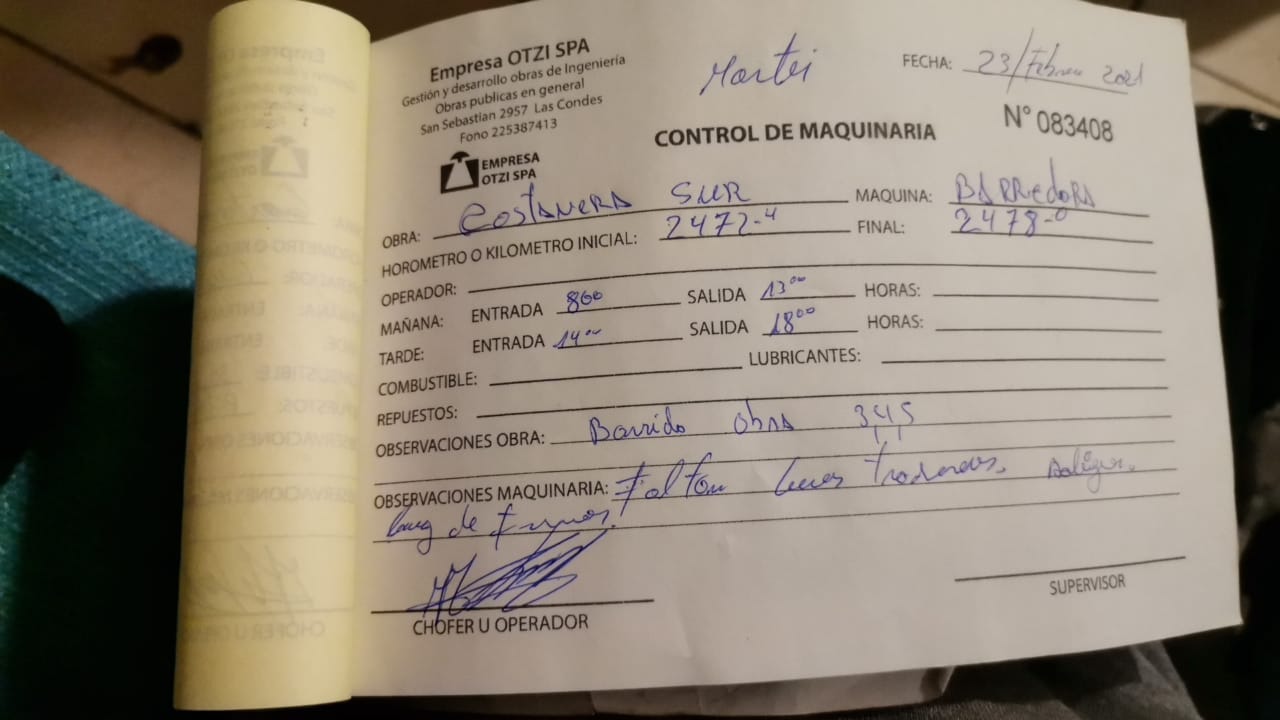 Empresa OTZI SPA
Gestión y desarrollo obras de Ingeniería
Obras publicas en general
San Sebastian 2957 Las Condes
Fono 225387413
EMPRESA
OTZI SPA
Martes
FECHA: 23/Febrero 2021
CONTROL DE MAQUINARIA
N° 083408
OBRA: Costanera Sur MAQUINA: Barredora
HOROMETRO O KILOMETRO INICIAL: 2472-4 FINAL: 2478-0
OPERADOR:
MAÑANA: ENTRADA 800 SALIDA 13oo HORAS:
TARDE: ENTRADA 14oo SALIDA 18oo HORAS:
COMBUSTIBLE: LUBRICANTES:
REPUESTOS:
OBSERVACIONES OBRA: Barrido obra 3,4,5
OBSERVACIONES MAQUINARIA: Faltan luces traseras.
de
CHOFER U OPERADOR
SUPERVISOR